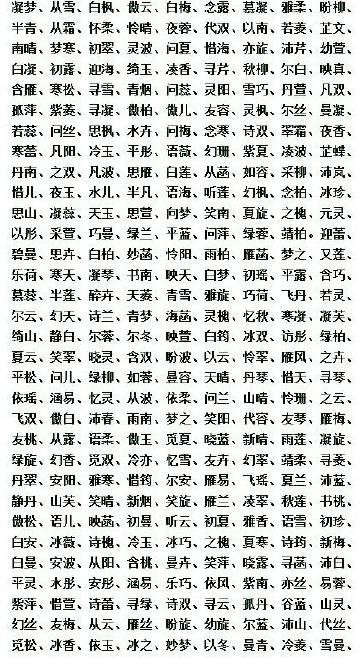 凝梦、从雪、白枫、傲云、白梅、念露、慕凝、雅柔、盼柳、
半青、从霜、怀柔、怜晴、夜蓉、代双、以南、若菱、芷文、
南晴、梦寒、初翠、灵波、问夏、惜海、亦旋、沛芹、幼萱、
白凝、初露、迎海、绮玉、凌香、寻芹、秋柳、尔白、映真、
含雁、寒松、寻雪、青烟、问蕊、灵阳、雪巧、丹萱、凡双、
孤萍、紫菱、寻凝、傲柏、傲儿、友容、灵枫、尔丝、曼凝、
若蕊、问丝、思枫、水卉、问梅、念寒、诗双、翠霜、夜香、
寒蕾、凡阳、冷玉、平彤、语薇、幻珊、紫夏、凌波、芷蝶、
丹南、之双、凡波、思雁、白莲、从菡、如容、采柳、沛岚、
惜儿、夜玉、水儿、半凡、语海、听莲、幻枫、念柏、冰珍、
思山、凝蕊、天玉、思萱、向梦、笑南、夏旋、之槐、元灵、
以彤、采萱、巧曼、绿兰、平蓝、问萍、绿蓉、靖柏、迎蕾、
碧曼、思卉、白柏、妙菡、怜阳、雨柏、雁菡、梦之、又莲、
乐荷、寒天、凝琴、书南、映天、白梦、初瑶、平露、含巧、
慕蕊、半莲、醉卉、天菱、青雪、雅旋、巧荷、飞丹、若灵、
尔云、幻天、诗兰、青梦、海菡、灵槐、忆秋、寒凝、凝芙、
绮山、静白、尔蓉、尔冬、映萱、白筠、冰双、访彤、绿柏、
夏云、笑翠、晓灵、含双、盼波、以云、怜翠、雁风、之卉、
平松、问儿、绿柳、如蓉、曼容、天晴、丹琴、惜天、寻琴、
依瑶、涵易、忆灵、从波、依柔、问兰、山晴、怜珊、之云、
飞双、傲白、沛春、雨南、梦之、笑阳、代容、友琴、雁梅、
友桃、从露、语柔、傲玉、觅夏、晓蓝、新晴、雨莲、凝旋、
绿旋、幻香、觅双、冷亦、忆雪、友卉、幻翠、靖柔、寻菱、
丹翠、安阳、雅寒、惜筠、尔安、雁易、飞瑶、夏兰、沛蓝、
静丹、山芙、笑晴、新烟、笑旋、雁兰、凌翠、秋莲、书桃、
傲松、语儿、映菡、初曼、听云、初夏、雅香、语雪、初珍、
白安、冰薇、诗槐、冷玉、冰巧、之槐、夏寒、诗筠、新梅、
白曼、安波、从阳、含桃、曼卉、笑萍、晓露、寻菡、沛白、
平灵、水彤、安彤、涵易、乐巧、依风、紫南、亦丝、易蓉、
紫萍、惜萱、诗蕾、寻绿、诗双、寻云、孤丹、谷蓝、山灵、
幻丝、友梅、从云、雁丝、盼旋、幼旋、尔蓝、沛山、代丝、
觅松、冰香、依玉、冰之、妙梦、以冬、曼青、冷菱、雪曼、